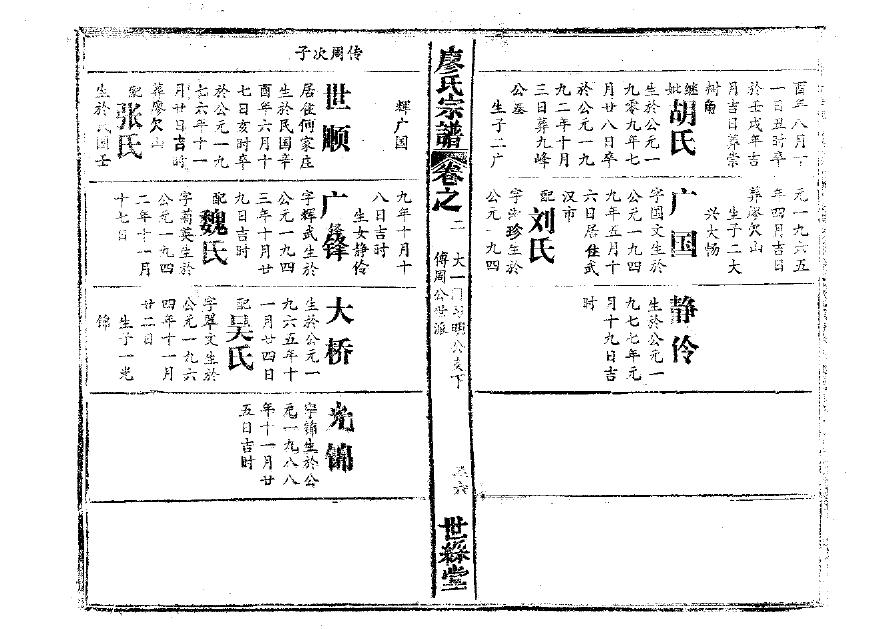 酉年八月丁
一日丑时卒
於壬戌年吉
月吉日葬崇
树角
继妣胡氏
生於公元一
九零九年七
月廿八日卒
於公元一九
九二年十月
三日葬九峰
公墓
生子二广
辉广国
元一九六五
年四月吉日
葬廖欠山
生子二大
兴大畅
广国
字国文生於
公元一九四
九年五月十
六日居住武
汉市
配刘氏
珍生於
公元一九四
九年十月十
八日吉时
生女静伶
静伶
生於公元一
九七七年元
月十九日吉
时
廖氏宗譜
卷之
二
傅周公世派
世綵堂
传周次子
世顺
居住何家庄
生於民国辛
酉年六月十
七日亥时卒
於公元一九
七六年十一
月廿日吉时
葬廖欠山
配张氏
生於民国壬
广锋
字辉武生於
公元一九四
三年十月廿
九日吉时
配魏氏
字菊英生於
公元一九四
二年十一月
十七日
大桥
生於公元一
九六五年十
一月廿四日
配吴氏
字翠文生於
公元一九六
四年十一月
廿二日
生子一光
锦
光锦
字锦生於公
元一九八八
年十一月廿
五日吉时